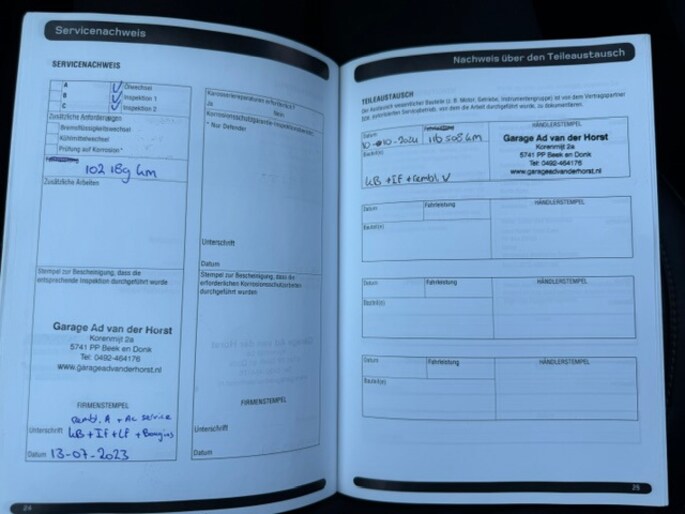 Servicenachweis
SERVICENACHWEIS
A Ölwechsel
B Inspektion 1
C Inspektion 2
Zusätzliche Anforderungen
Bremsflüssigkeitswechsel
Kühlmittelwechsel
Prüfung auf Korrosion*
102 189 km
Zusätzliche Arbeiten
Stempel zur Bescheinigung, dass die
entsprechende Inspektion durchgeführt wurde
Garage Ad van der Horst
Korenmijt 2a
5741 PP Beek en Donk
Tel: 0492-464176
www.garageadvanderhorst.nl
FIRMENSTEMPEL
rembl. A + Ac service
Unterschrift KB+If+Lf + Bougies
Datum 13-07-2023
24
Korrosionsreparaturen erforderlich?
Ja Nein
* Nur Defender
Unterschrift
Datum
Stempel zur Bescheinigung, dass die
erforderlichen Korrosionsschutzarbeiten
durchgeführt wurden
FIRMENSTEMPEL
Unterschrift
Datum
Nachweis über den Teileaustausch
TEILEAUSTAUSCH
Der Austausch wesentlicher Bauteile (z. B. Motor, Getriebe, Instrumentengruppe) ist von dem Vertragspartner
bzw. autorisierten Servicebetrieb, von dem die Arbeit durchgeführt wurde, zu dokumentieren.
Datum
HÄNDLERSTEMPEL
10-10-2024 116 508 km
Bauteil(e)
KB + If + rembl. V
Garage Ad van der Horst
Korenmijt 2a
5741 PP Beek en Donk
Tel: 0492-464176
www.garageadvanderhorst.nl
Datum Fahrleistung HÄNDLERSTEMPEL
Bauteil(e)
Datum Fahrleistung HÄNDLERSTEMPEL
Bauteil(e)
Datum Fahrleistung HÄNDLERSTEMPEL
Bauteil(e)
25